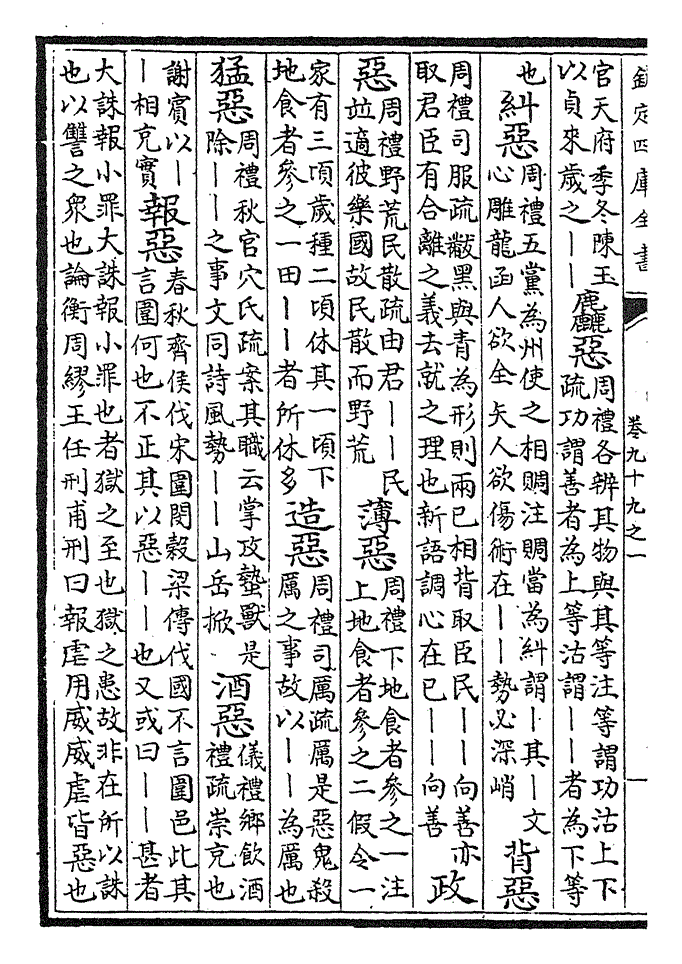 欽定四庫全書
卷九十九之一
官天府季冬陳玉
以貞來歲之――
麤惡
周禮各辨其物與其等注等謂功沽上下
疏功謂善者為上等沽謂――者為下等
也
糾惡
周禮五黨為州使之相賙注賙當為糾謂―其―文
心雕龍函人欲全矢人欲傷術在――勢必深峭
背惡
周禮司服疏黻黑與青為形則兩已相背取臣民――向善亦
取君臣有合離之義去就之理也新語調心在已――向善
政
惡
周禮野荒民散疏由君――民
竝適彼樂國故民散而野荒
薄惡
周禮下地食者參之一注
上地食者參之二假令一
家有三頃歲種二頃休其一頃下
地食者參之一田――者所休多
造惡
周禮司厲疏厲是惡鬼殺
厲之事故以――為厲也
猛惡
周禮秋官穴氏疏案其職云掌攻蟄獸是
除――之事文同詩風勢――山岳掀
酒惡
儀禮鄉飲酒
禮疏崇充也
謝賓以―
―相充實
報惡
春秋齊侯伐宋圍閔穀梁傳伐國不言圍邑此其
言圍何也不正其以惡――也又或曰――甚者
大誅報小罪大誅報小罪也者獄之至也獄之患故非在所以誅
也以讐之衆也論衡周繆王任刑甫刑曰報虐用威威虐皆惡也
一